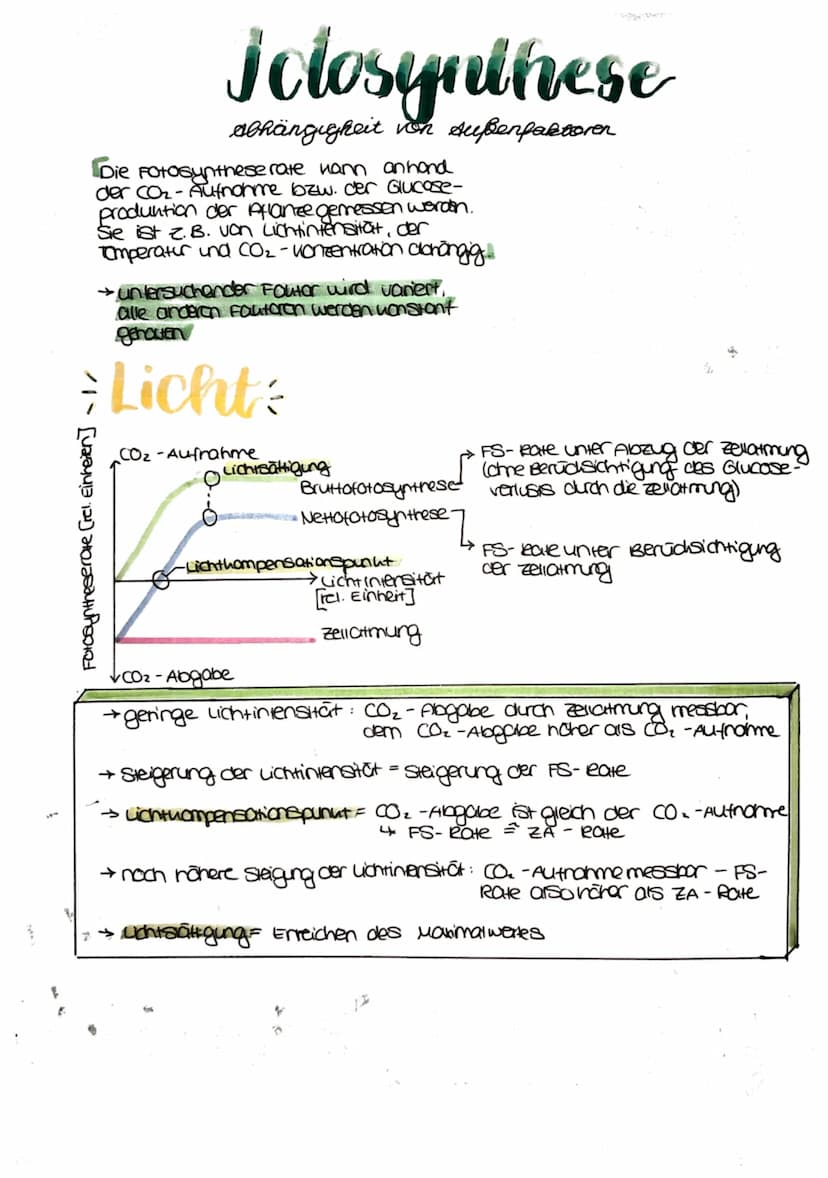 Fotosynthese
Abhängigkeit von Außenfaktoren
Die Fotosyntheserate kann anhand
der CO₂-Aufnahme bzw. der Glucose-
produktion der Pflanze gemessen werden.
Sie ist z.B. von Lichtintensität, der
Temperatur und CO₂-Konzentration abhängig.
→ untersuchender Faktor wird variiert,
alle anderen Faktoren werden konstant
gehalten
Licht
Fotosyntheserate [rel. Einheiten]
CO₂-Aufnahme
Lichtsättigung
Bruttofotosynthese
→ FS-Rate unter Abzug der Zellatmung
(ohne Berücksichtigung des Glucose-
verlusts durch die Zellatmung)
Nettofotosynthese
→ FS-Rate unter Berücksichtigung
der Zellatmung
Lichtkompensationspunkt
Lichtintensität
[rel. Einheit]
Zellatmung
CO₂-Abgabe
→ geringe Lichtintensität: CO₂-Abgabe durch Zellatmung messbar,
dem CO₂-Abgabe höher als CO₂-Aufnahme
→ Steigerung der Lichtintensität = Steigerung der FS-Rate
→ Lichtkompensationspunkt = CO₂-Abgabe ist gleich der CO₂-Aufnahme
↳ FS-Rate ≙ ZA-Rate
→ noch höhere Steigung der Lichtintensität: CO₂-Aufnahme messbar - FS-
Rate also höher als ZA-Rate
→ Lichtsättigung = Erreichen des Maximalwertes